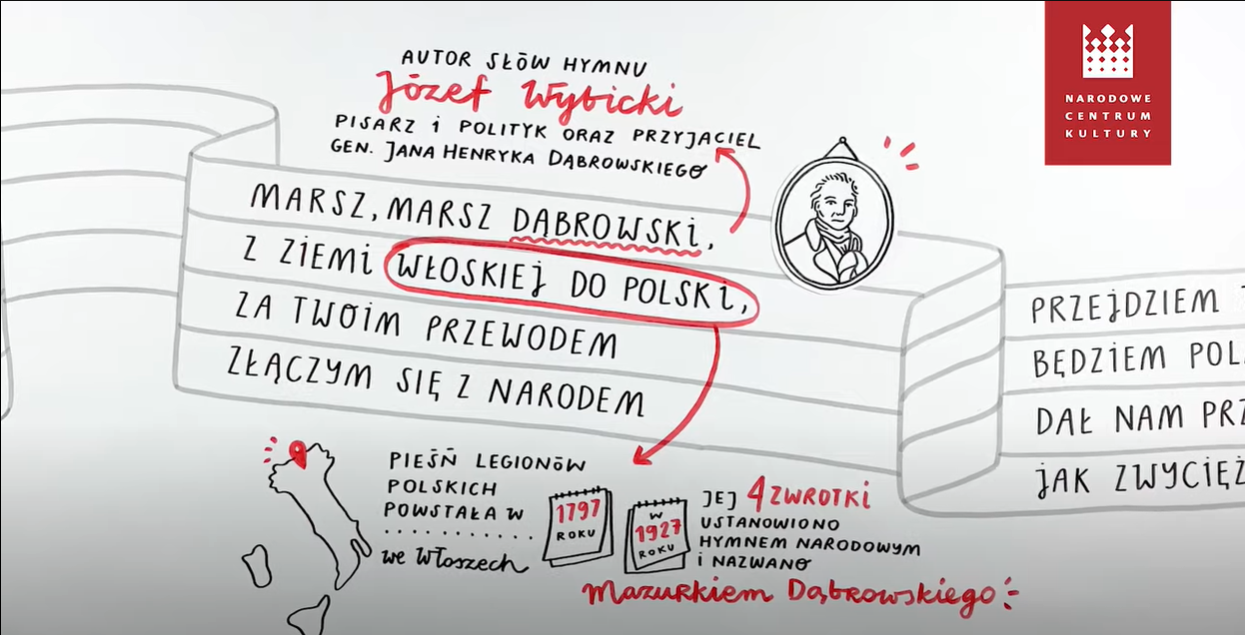 AUTOR SŁÓW HYMNU
Józef Wybicki
PISARZ i POLITYK ORAZ PRZYJACIEL
GEN. JANA HENRYKA DĄBROWSKIEGO
NARODOWE
CENTRUM
KULTURY
MARSZ, MARSZ DĄBROWSKi,
Z ZIEMi WŁOSKIEJ DO POLSKi,
ZA TWOiM PRZEWODEM
ZŁĄCZYM SIĘ Z NARODEM
PRZEJDZIEM
BĘDZiEM POL
DAŁ NAM PRZ
JAK ZWYCIĘŻ
PIEŚŃ LEGIONÓW
POLSKICH
POWSTAŁA W
we Włoszech
1797
ROKU
W
1927
ROKU
JEJ 4 ZWROTKI
USTANOWIONO
HYMNEM NARODOWYM
i NAZWANO
Mazurkiem Dąbrowskiego